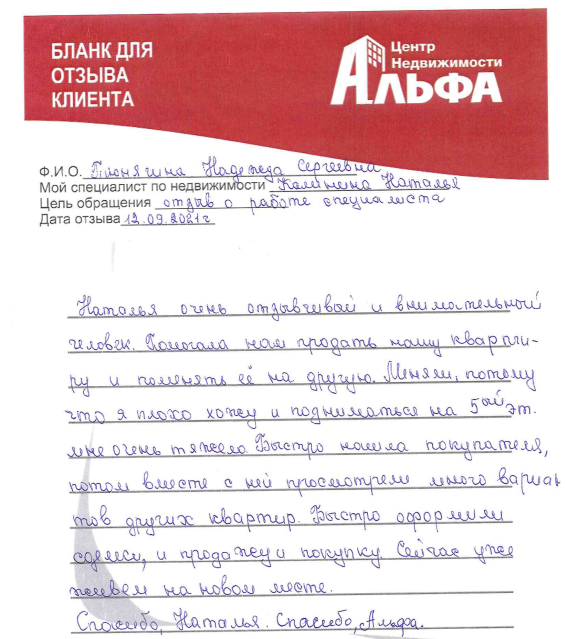 БЛАНК ДЛЯ
ОТЗЫВА
КЛИЕНТА
Центр
Недвижимости
АЛЬФА
Ф.И.О. Тюнягина Надежда Сергеевна
Мой специалист по недвижимости Калинина Наталья
Цель обращения отзыв о работе специалиста
Дата отзыва 12.09.2021г
Наталья очень отзывчивый и внимательный
человек. Помогала нам продать нашу кварти-
ру и поменять её на другую. Меняли, потому
что я плохо хожу и подниматься на 5ый эт.
мне очень тяжело. Быстро нашла покупателя,
потом вместе с ней просмотрели много вариан
тов других квартир. Быстро оформили
сделки, и продажу и покупку. Сейчас уже
живем на новом месте.
Спасибо, Наталья. Спасибо, Альфа.